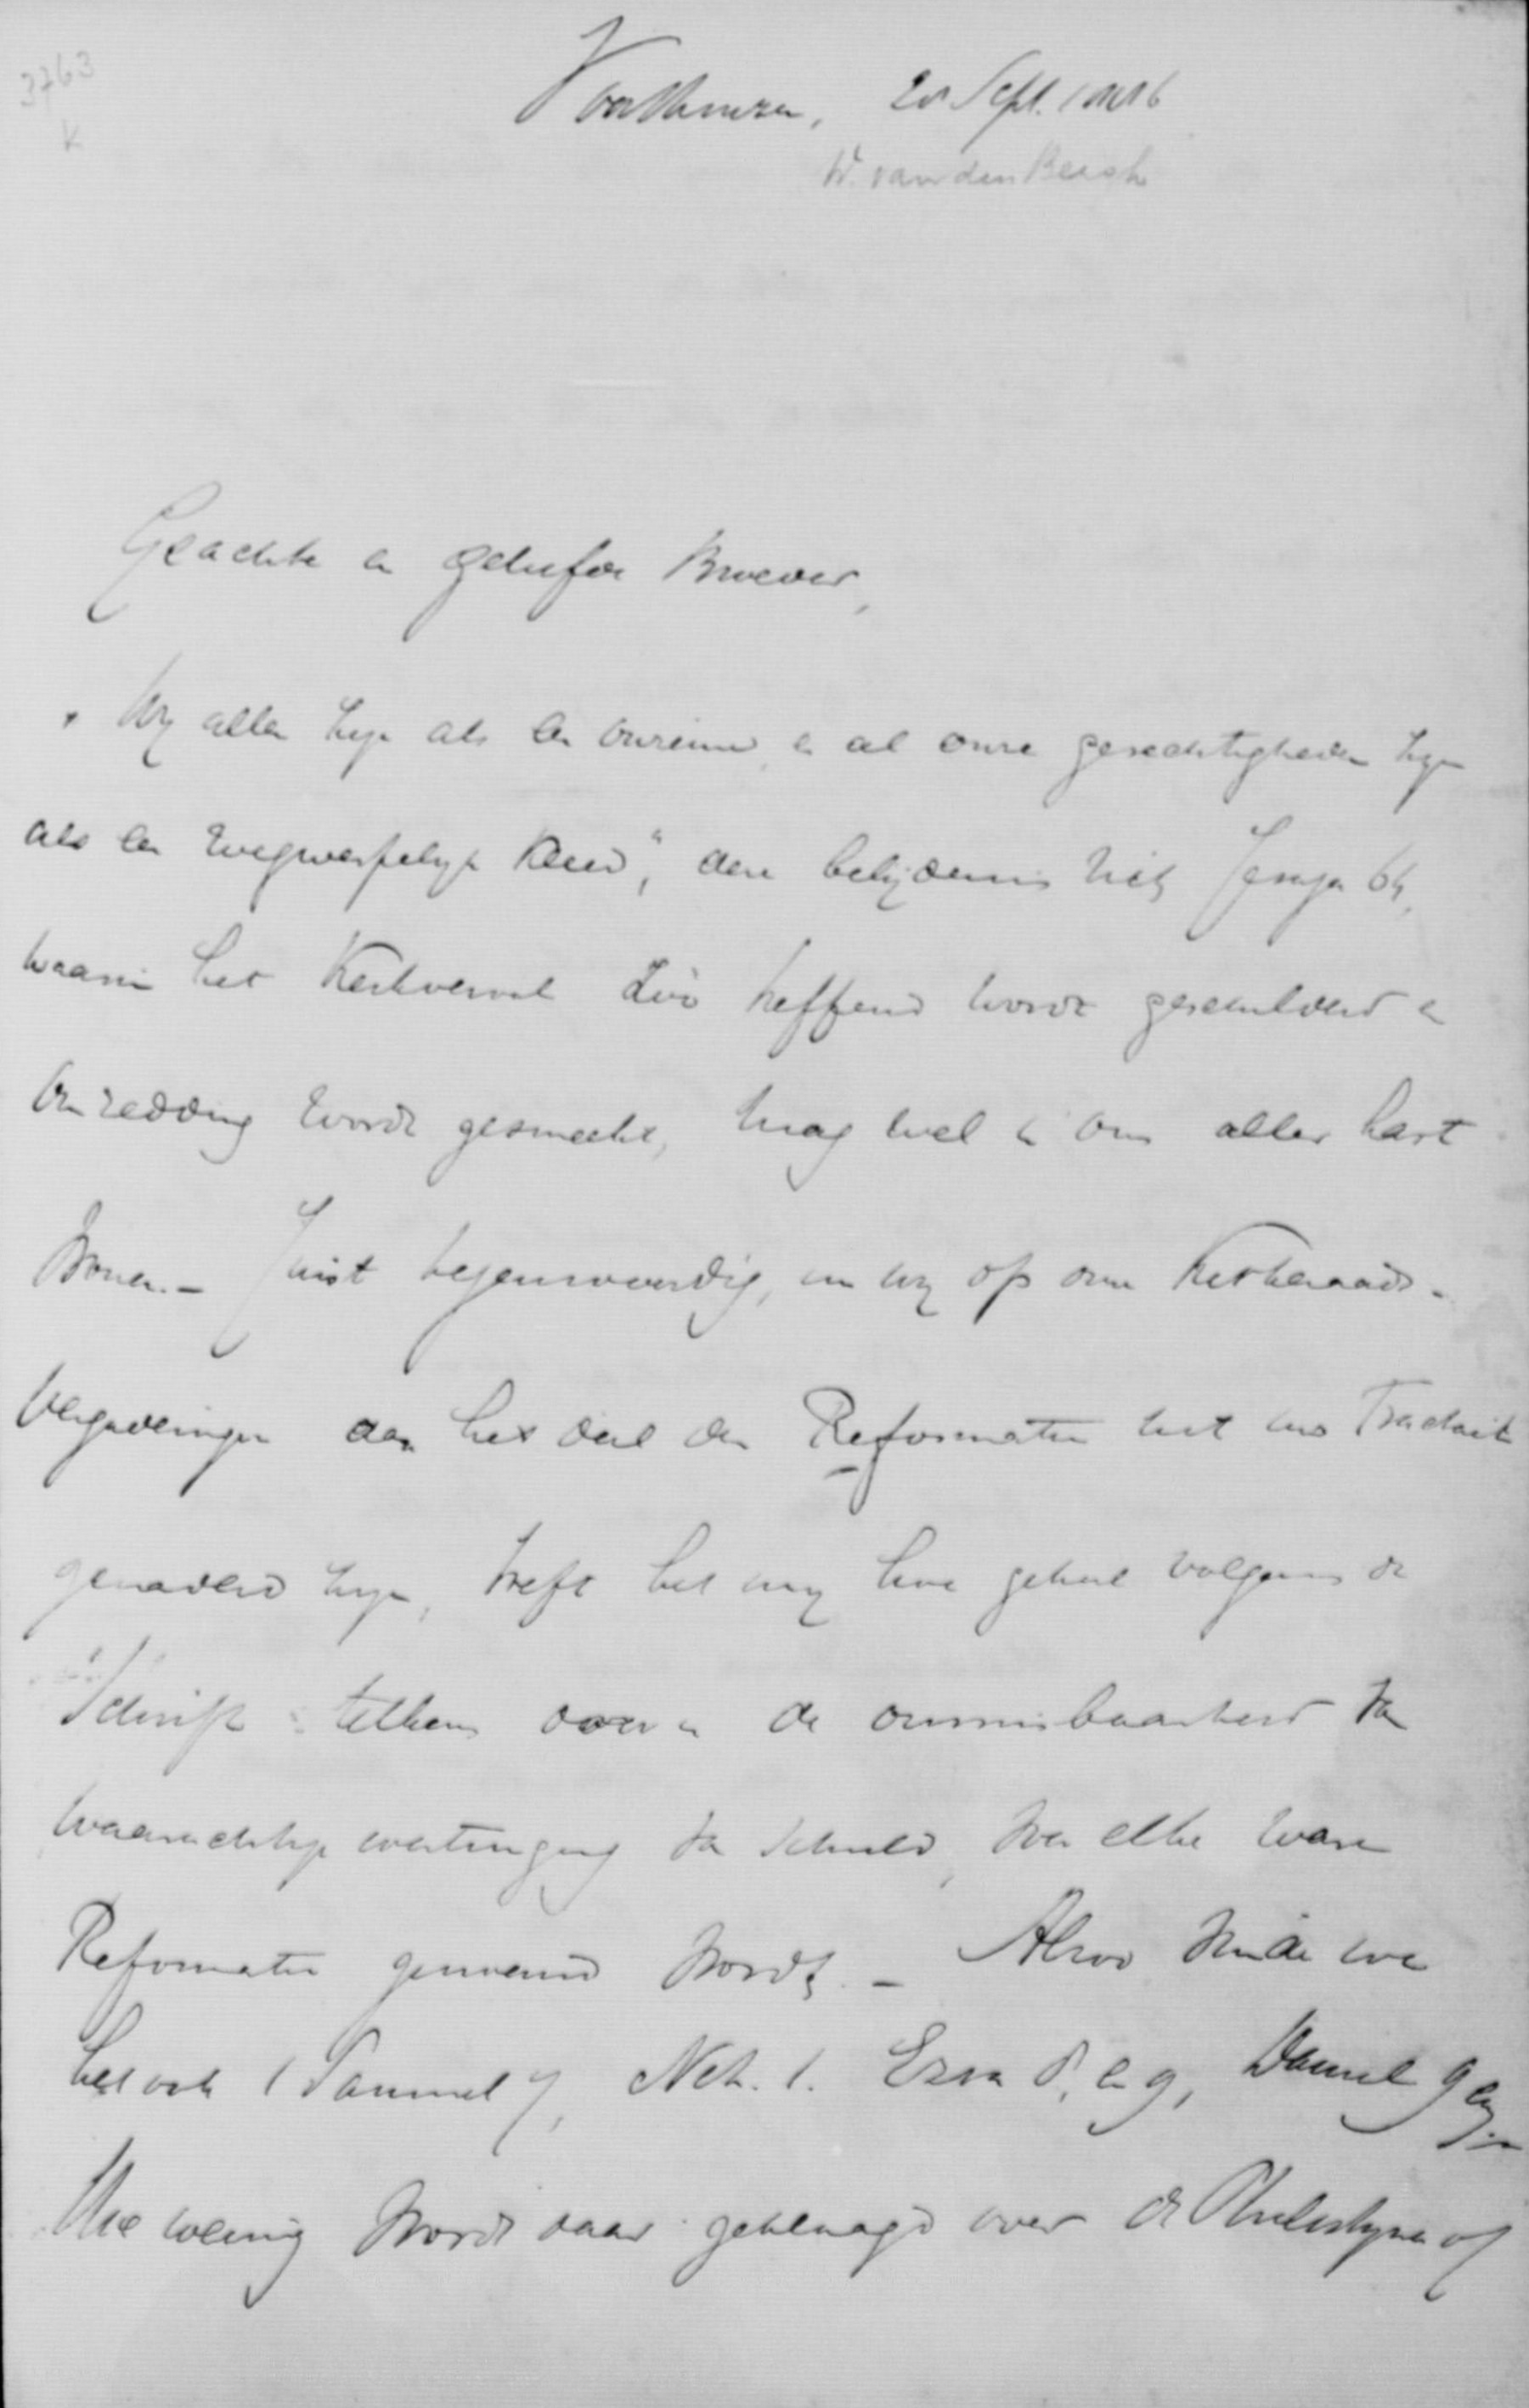 3763
K
Voorthuizen, 20 Sept. 1886
W. van den Bergh
Geachte en geliefde Broeder,
„Wy allen zyn als een onreine, en al onze gerechtigheden zyn
als een wegwerpelyk kleed", deze belydenis uit Jesaja 64,
waarin het Kerkverval zoo treffend wordt geschilderd en
om redding wordt gesmeekt, mag wel in ons aller hart
wonen. – Juist tegenwoordig, nu wy op onze Kerkeraads-
vergaderingen aan het deel der Reformatie uit uw Tractaat
genaderd zyn, treft het my hoe geheel volgens de
Schrift telkens door u de onmisbaarheid van
waarachtige overtuiging van schuld voor elke ware
Reformatie genoemd wordt. – Alzoo vinden we
het ook 1 Samuel 7, Neh. 1. Ezra 8, en 9, Daniel 9 enz. –
Hoe weinig wordt daar geklaagd over de Philistynen of